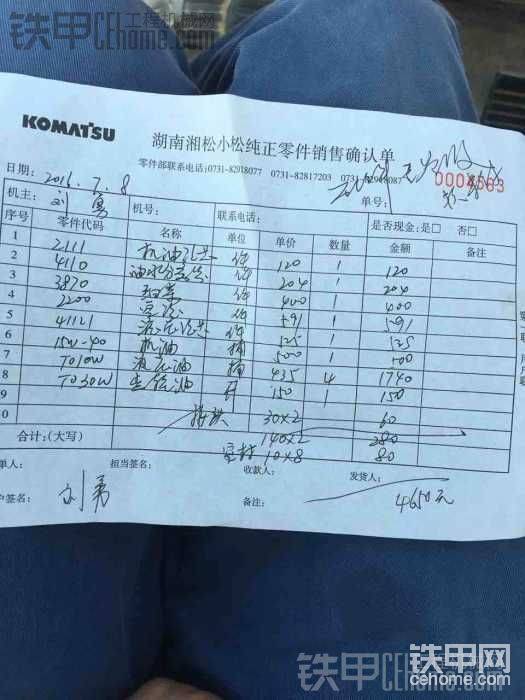 铁甲工程机械网
CEhome.com
KOMATSU
湖南湘松小松纯正零件销售确认单
零件部联系电话:0731-82918077 0731-82817203 0731-82918087
日期: 2016.7.8
单号: 0004563
机主: 刘勇 机号: 联系电话: 是否现金:是□ 否□
序号 零件代码 名称 单位 单价 数量 金额 备注
1 2111 机油 件 120 1 120
2 4110 油水分 件 204 1 204
3 3870 件 400 1 400
4 2200 件 591 1 591
5 41121 件 525 1 525
6 15W-40 机油 桶 500 1 500
7 TO10W 液压油 桶 435 4 1740
8 TO30W 齿轮油 150 1 150
9 30×2 60
0 140×2 280
合计:(大写) 10×8 80
单人: 担当签名: 收款人: 发货人:
户签名: 刘勇 备注: 4650元
铁甲网
cehome.com